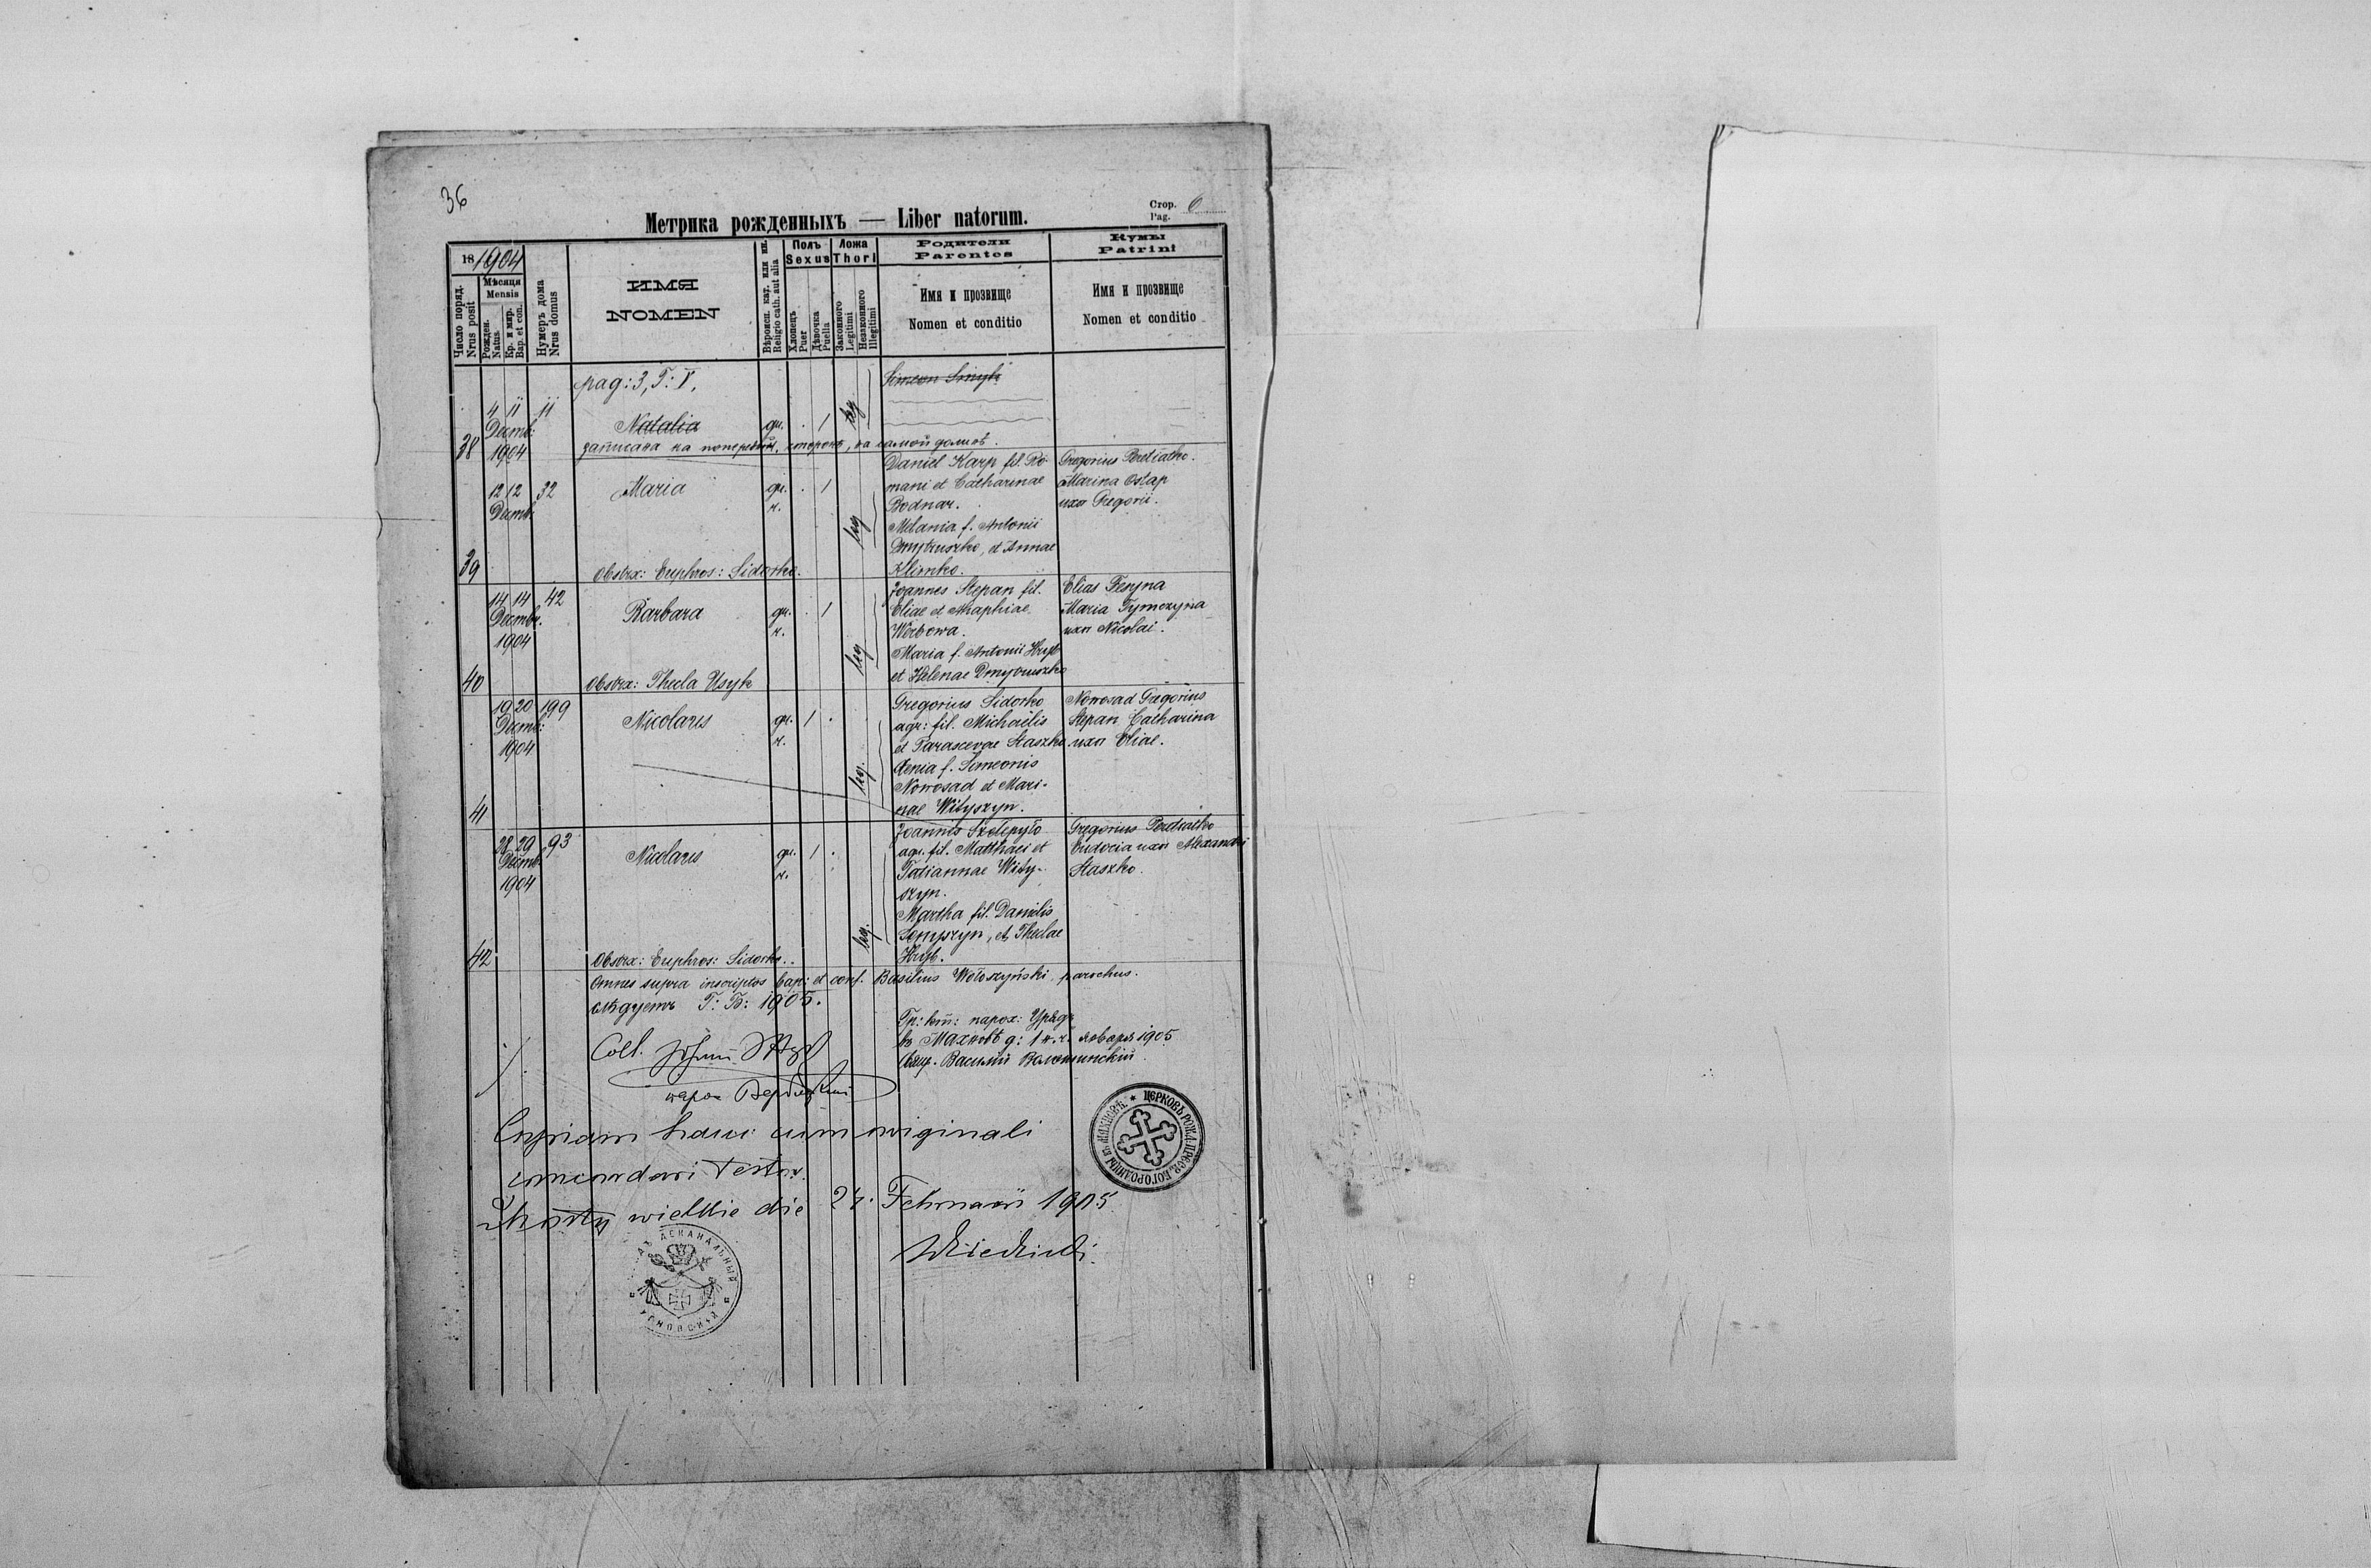 36
Метрика рожденныхъ — Liber natorum.
Стор. 6
Pag.
18 1904
Число поряд.
Nrus posit
Мѣсяця
Mensis
Рожден.
Natus.
Кр. и мир.
Bap. et con.
Нумеръ дома
Nrus domus
ИМЯ
NOMEN
Вѣроисп. кат. или ин.
Religio cath. aut alia
Полъ
Sexus
Хлопець
Puer
Дѣвочка
Puella
Ложа
Thori
Законного
Legitimi
Незаконного
Illegitimi
Родители
Parentes
Имя и прозвище
Nomen et conditio
Кумы
Patrini
Имя и прозвище
Nomen et conditio
pag: 3, T: V,
Simeon Smyk
38
4 11 11
Decmb:
1904
Natalia
gr. . 1
leg
записана на стороне, на самой долинѣ.
39
12 12 32
Decmb:
Maria
gr. . 1
r.
leg
Daniel Karp fil. Ro-
mani et Catharinae
Bodnar.
Melania f. Antonii
Dmytruszko, et Annae
Klimko.
Gregorius Perediatko.
Marina Ostap
uxor Gregorii.
Obstrx: Euphros: Sidorko.
40
14 14 42
Decmbr.
1904
Barbara
gr. . 1
r.
leg
Joannes Stepan fil.
Eliae et Ahaphiae
Werbowa.
Maria f. Antonii Hryb
et Helenae Dmytruszko
Elias Fesyna
Maria Tymczyna
uxor Nicolai.
Obstrx: Thecla Usyk
41
19 20 199
Decmb:
1904
Nicolaus
gr. 1 .
r.
leg.
Gregorius Sidorko
agr: fil. Michaëlis
et Parascevae Staszko
Xenia f. Simeonis
Nowosad et Mari-
nae Wityszyn.
Nowosad Gregorius
Stepan Catharina
uxor Eliae.
42
28 29 93
Decmb.
1904
Nicolaus
gr. 1 .
r.
leg.
Joannes Szelepyło
agr. fil. Matthaei et
Tatiannae Wity-
szyn.
Martha fil. Danielis
Senyszyn, et Theclae
Hryb.
Gregorius Perediatko
Eudocia uxor Alexandri
Staszko.
Obstrx: Euphros: Sidorko.
Omnes supra inscriptos bap: et conf. Basilius Wołoszyński parochus.
слѣдуетъ Г: Б: 1905.
Гр: кат: парох: Урядъ
въ Махновѣ д: 1 н. ч. января 1905
Свящ. Василій Волошинскій
Coll.
парох
Copiam hanc cum originali
concordari testor.
wielkie die 24. Februarii 1905
ЦЕРКОВЬ РОЖД. ПРЕСВ. БОГОРОДИЦЫ въ МАХНОВѢ
ДЕКАНАЛЬНЫЙ